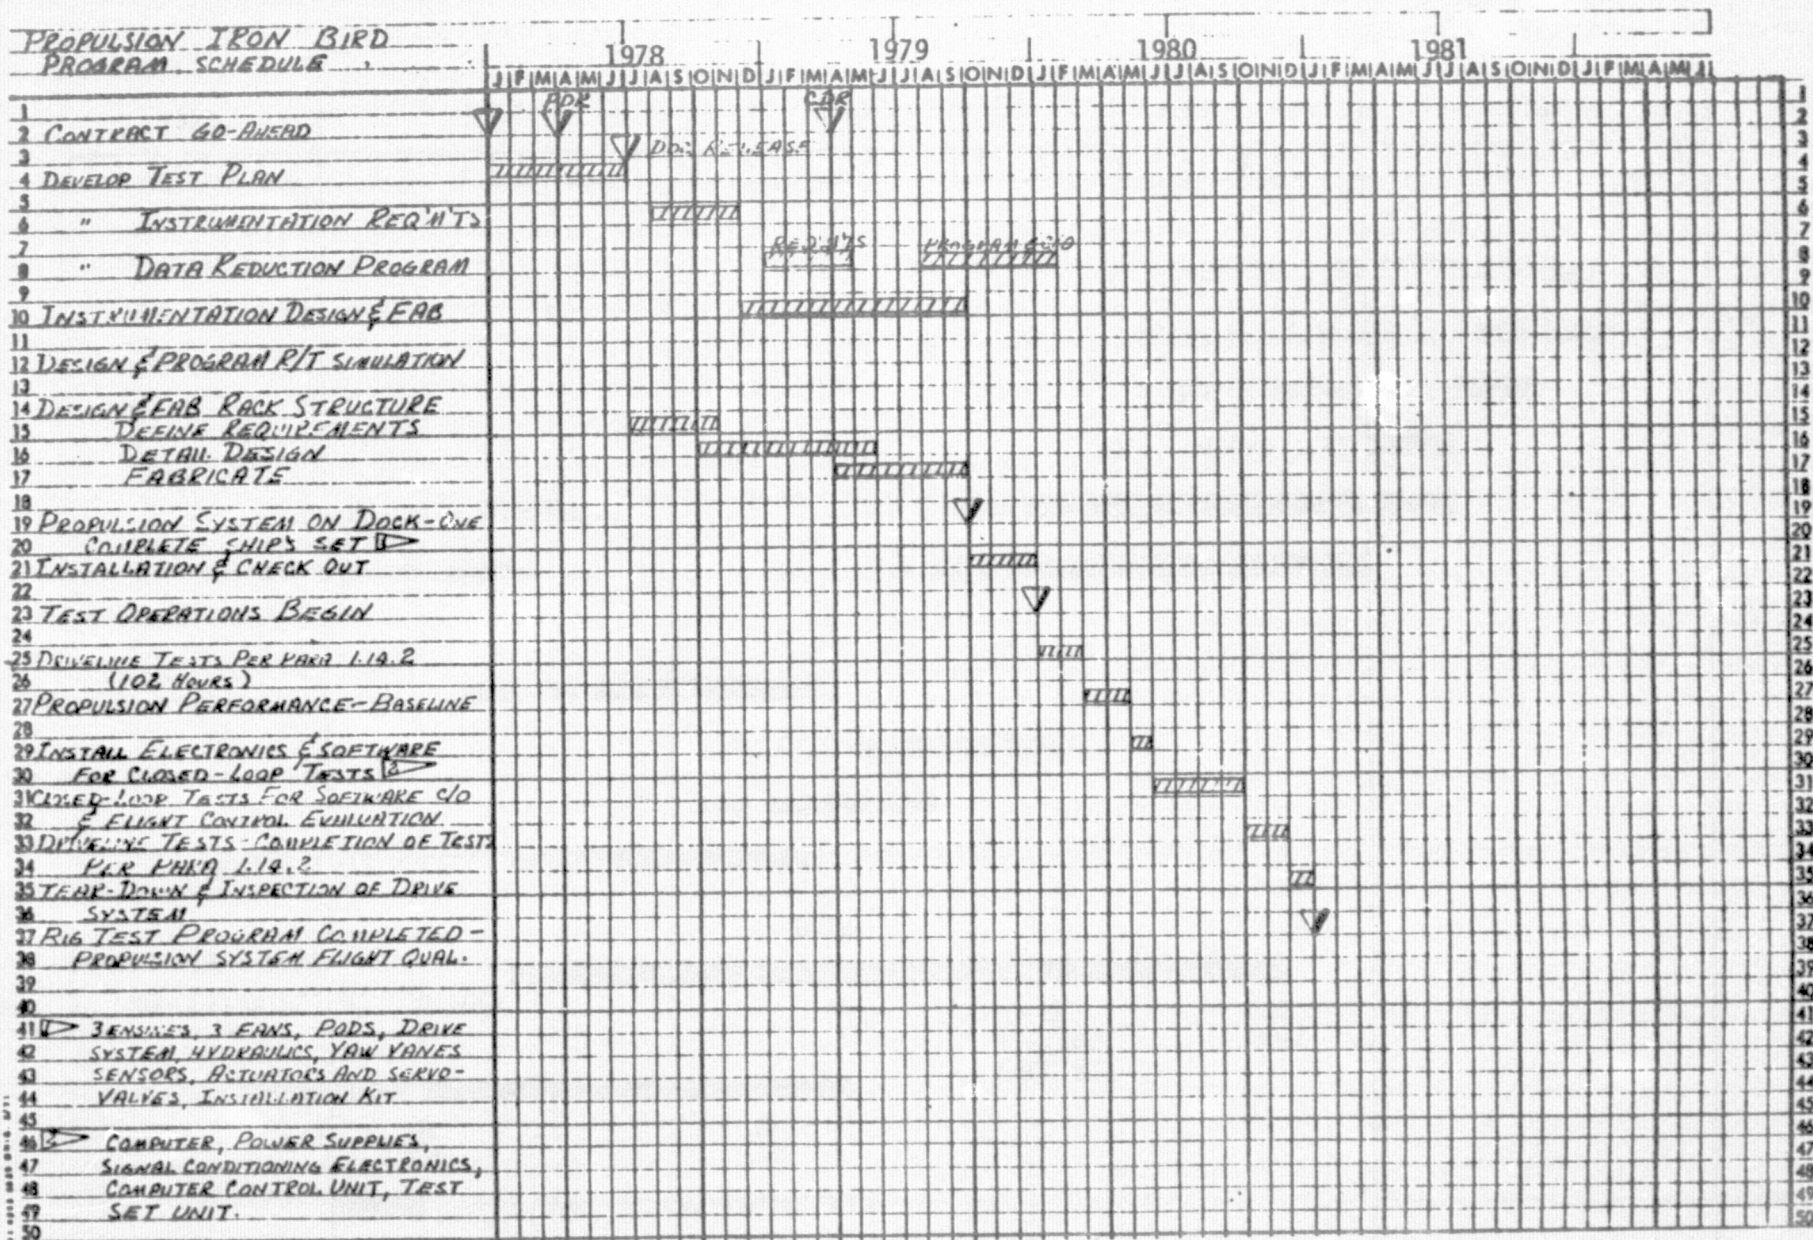 PROPULSION IRON BIRD
PROGRAM SCHEDULE
1978 1979 1980 1981
J F M A M J J A S O N D J F M A M J J A S O N D J F M A M J J A S O N D J F M A M J J A S O N D J F M A M J
1 PDR CDR 1
2 CONTRACT GO-AHEAD 2
3 DOC RELEASE 3
4 DEVELOP TEST PLAN 4
5 5
6 " INSTRUMENTATION REQ'M'TS 6
7 REQ'M'TS PROGRAM 7
8 " DATA REDUCTION PROGRAM 8
9 9
10 INSTRUMENTATION DESIGN & FAB 10
11 11
12 DESIGN & PROGRAM R/T SIMULATION 12
13 13
14 DESIGN & FAB RACK STRUCTURE 14
15 DEFINE REQUIREMENTS 15
16 DETAIL DESIGN 16
17 FABRICATE 17
18 18
19 PROPULSION SYSTEM ON DOCK-ONE 19
20 COMPLETE SHIP'S SET 1 20
21 INSTALLATION & CHECK OUT 21
22 22
23 TEST OPERATIONS BEGIN 23
24 24
25 DRIVELINE TESTS PER PARA 1.14.2 25
26 (102 HOURS) 26
27 PROPULSION PERFORMANCE-BASELINE 27
28 28
29 INSTALL ELECTRONICS & SOFTWARE 29
30 FOR CLOSED-LOOP TESTS 2 30
31 CLOSED-LOOP TESTS FOR SOFTWARE C/O 31
32 & FLIGHT CONTROL EVALUATION 32
33 DRIVELINE TESTS-COMPLETION OF TESTS 33
34 PER PARA 1.14.2 34
35 TEAR-DOWN & INSPECTION OF DRIVE 35
36 SYSTEM 36
37 RIG TEST PROGRAM COMPLETED- 37
38 PROPULSION SYSTEM FLIGHT QUAL. 38
39 39
40 40
41 1 3 ENGINES, 3 FANS, PODS, DRIVE 41
42 SYSTEM, HYDRAULICS, YAW VANES 42
43 SENSORS, ACTUATORS AND SERVO- 43
44 VALVES, INSTALLATION KIT 44
45 45
46 2 COMPUTER, POWER SUPPLIES, 46
47 SIGNAL CONDITIONING ELECTRONICS, 47
48 COMPUTER CONTROL UNIT, TEST 48
49 SET UNIT. 49
50 50